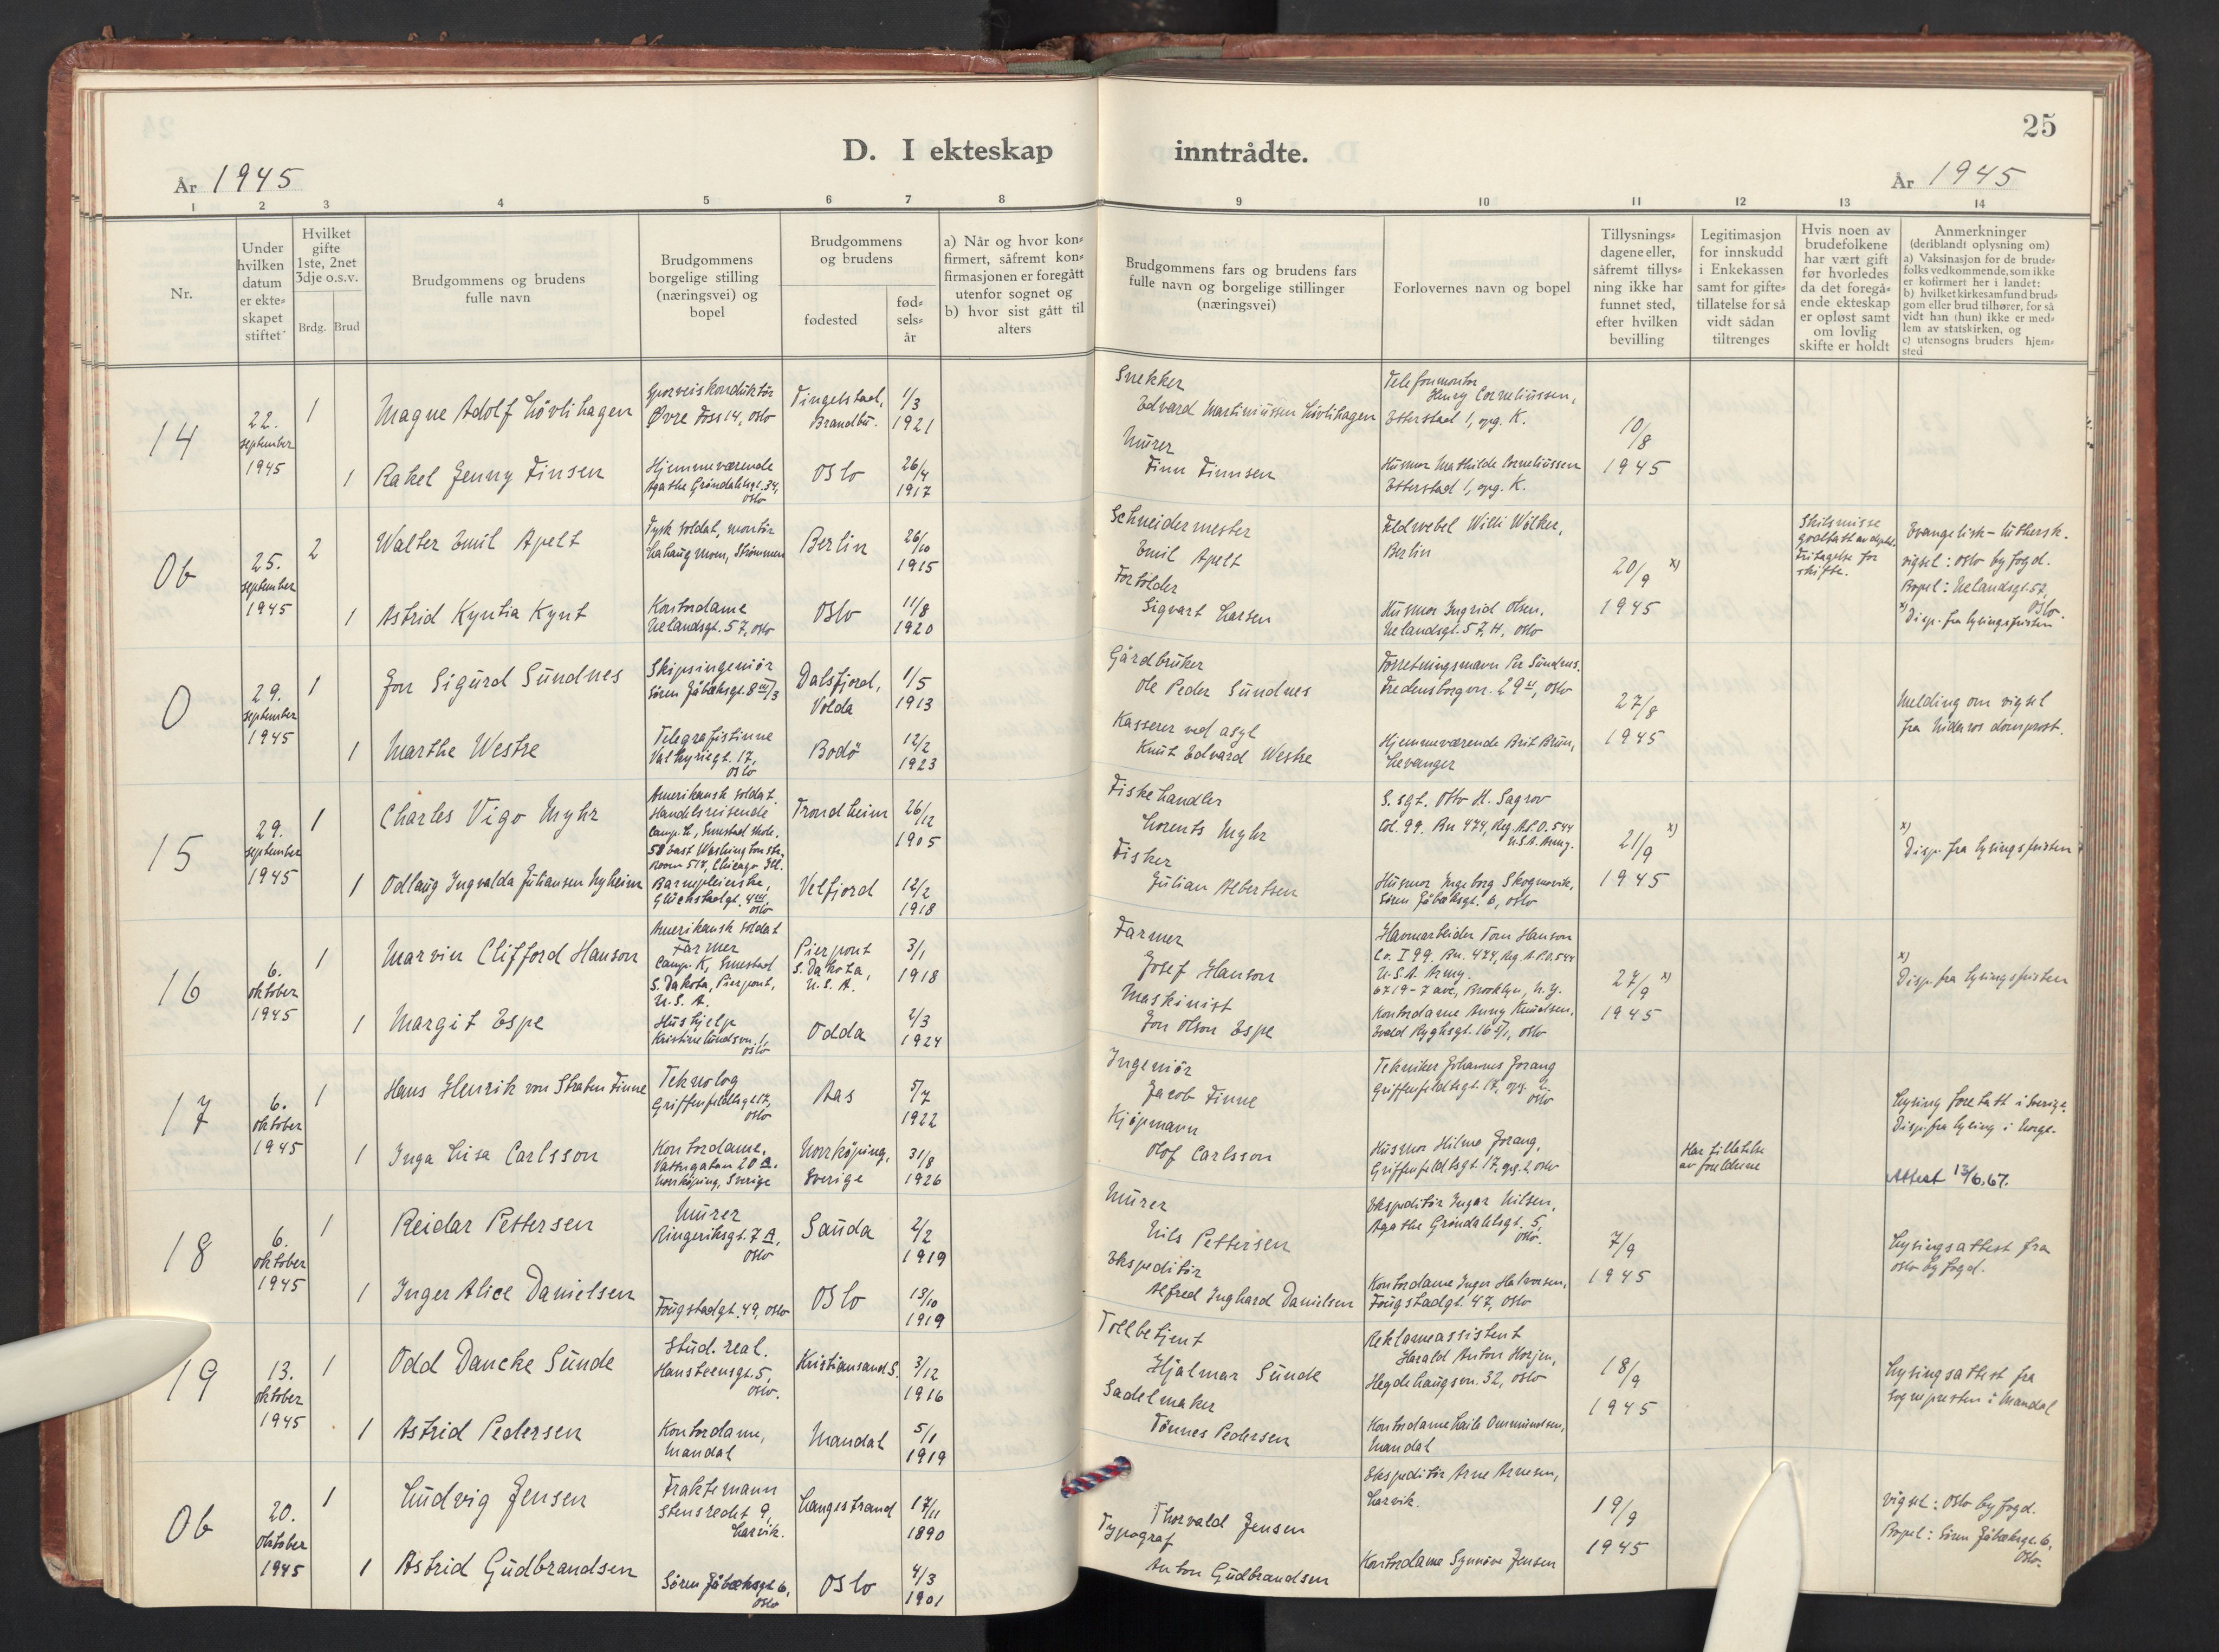 D. I ekteskap
inntrådte.
25
År 1945
År 1945
1 2 3 4 5 6 7 8 9 10 11 12 13 14
Nr.
Under
hvilken
datum
er ekte-
skapet
stiftet
Hvilket
gifte
1ste, 2net
3dje o.s.v.
Brdg. Brud
Brudgommens og brudens
fulle navn
Brudgommens
borgelige stilling
(næringsvei) og
bopel
Brudgommens
og brudens
fødested
fød-
sels-
år
a) Når og hvor kon-
firmert, såfremt kon-
firmasjonen er foregått
utenfor sognet og
b) hvor sist gått til
alters
Brudgommens fars og brudens fars
fulle navn og borgelige stillinger
(næringsvei)
Forlovernes navn og bopel
Tillysnings-
dagene eller,
såfremt tillys-
ning ikke har
funnet sted,
efter hvilken
bevilling
Legitimasjon
for innskudd
i Enkekassen
samt for gifte-
tillatelse for så
vidt sådan
tiltrenges
Hvis noen av
brudefolkene
har vært gift
før hvorledes
da det foregå-
ende ekteskap
er opløst samt
om lovlig
skifte er holdt
Anmerkninger
(deriblandt oplysning om)
a) Vaksinasjon for de brude-
folks vedkommende, som ikke
er kofirmert her i landet:
b) hvilket kirkesamfund brud-
gom eller brud tilhører, for så
vidt han (hun) ikke er med-
lem av statskirken, og
c) utensogns bruders hjem-
sted
14
22.
september
1945
1
Magne Adolf Løvlihagen
Sporveiskonduktør
Øvre Foss 14, Oslo
Tingelstad,
Brandbu.
1/3
1921
Snekker
Edvard Martiniussen Løvlihagen
Telefonmontør
Henry Corneliussen,
Etterstad 1, opg. K.
10/8
1945
1
Rakel Jenny Finsen
Hjemmeværende
Agathe Grøndahlsgt. 34,
Oslo
Oslo
26/4
1917
Murer
Finn Finnsen
Husmor Mathilde Corneliussen
Etterstad 1, opg. K.
Ob
25.
september
1945
2
Walter Emil Apelt
Tysk soldat, montør
Lahaugmoen, Strømmen
Berlin
26/10
1915
Schneidermester
Emil Apelt
Feldwebel Willi Wölker,
Berlin
20/9 x)
1945
Skilsmisse
godtatt av dept.
Fritagelse for
skifte.
Evangelisk-luthersk.
vigsel: Oslo byfogd.
Bopel: Uelandsgt. 57,
Oslo.
x) Disp. fra lysingsfristen
1
Astrid Kyntia Kynt
Kontordame
Uelandsgt. 57, Oslo
Oslo
11/8
1920
Forfølder
Sigvart Larsen
Husmor Ingrid Olsen,
Uelandsgt. 57, H, Oslo
O
29.
september
1945
1
Jon Sigurd Sundnes
Skipsingeniør
Søren Jåbæksgt. 8 III/3
Dalsfjord,
Volda
1/5
1913
Gårdbruker
Ole Peder Sundnes
Forretningsmann Per Sundnes.
Fredensborgvn. 29 II, Oslo
27/8
1945
Melding om vigsel
fra Nidaros domprost.
1
Marthe Westre
Telegrafistinne
Valkyriegt. 17,
Oslo
Bodø
12/2
1923
Kasserer ved asyl
Knut Edvard Westre
Hjemmeværende Brit Brun,
Levanger
15
29.
september
1945
1
Charles Vigo Myhr
Amerikansk soldat
Handelsreisende
Camp. L, Smestad skole.
58 East Washington str.
Room 517, Chicago Ill.
Trondheim
26/12
1905
Fiskehandler
Lorents Myhr
S. sgt. Otto H. Sagrov
Col. 99. Bn 474, Reg. A.P.O. 544
U.S.A. Army.
21/9 x)
1945
x)
Disp. fra lysingsfristen
1
Odlaug Ingvalda Juliansen Nyheim
Barnepleierske,
Glückstadgt. 4 III,
Oslo
Velfjord
12/2
1918
Fisker
Julian Albertsen
Husmor Ingeborg Skogmovik,
Søren Jåbæksgt. 6, Oslo
16
6.
oktober
1945
1
Marvin Clifford Hanson
Amerikansk soldat
Farmer
Camp. K, Smestad
S. Dakota, Pierpont,
U.S.A.
Pierpont
S. Dakota,
U.S.A.
3/1
1918
Farmer
Josef Hanson
Havnearbeider Tom Hanson
Co. I 99. Bn. 474, Reg. A.P.O. 544
U.S.A. Army.
6719-7 ave, Brooklyn, N.Y.
27/9 x)
1945
x)
Disp. fra lysingsfristen
1
Margit Espe
Hushjelp
Kristinelundsvn. 1,
Oslo
Odda
2/3
1924
Maskinist
Jon Olson Espe
Kontordame Anny Knudsen,
Evald Ryghsgt. 16 II/1, Oslo
17
6.
oktober
1945
1
Hans Henrik von Straten Finne
Teknolog
Griffenfeldtsgt. 17,
Oslo
Aas
5/7
1922
Ingeniør
Jacob Finne
Tekniker Johannes Jorang
Griffenfeldtsgt. 17, opg. 2.
Oslo
Lysing foretatt i Sverige.
Disp. fra lysing i Norge.
1
Inga Lisa Carlsson
Kontordame,
Vattugatan 20 A.
Norrköping, Sverige
Norrköping,
Sverige
31/8
1926
Kjøpmann
Olof Carlsson
Husmor Hilma Jorang,
Griffenfeldtsgt. 17, opg. 2, Oslo
Har tillatelse
av foreldrene
Attest 13/6.67.
18
6.
oktober
1945
1
Reidar Pettersen
Murer
Ringeriksgt. 7 A,
Oslo
Sauda
2/2
1919
Murer
Nils Pettersen
Ekspeditør Ingar Nilsen,
Agathe Grøndahlsgt. 5,
Oslo.
7/9
1945
Lysingsattest fra
Oslo byfogd.
1
Inger Alice Danielsen
Fougstadgt. 49, Oslo
Oslo
13/10
1919
Ekspeditør
Alfred Inghard Danielsen
Kontordame Inger Halvorsen,
Fougstadgt. 47, Oslo
19
13.
oktober
1945
1
Odd Dancke Sunde
Stud. real.
Hansteensgt. 5,
Oslo.
Kristiansand S.
3/12
1916
Tollbetjent
Hjalmar Sunde
Reklameassistent
Harald Anton Horjen,
Hegdehaugsvn. 32, Oslo
18/9
1945
Lysingsattest fra
Sognepresten i Mandal
1
Astrid Pedersen
Kontordame,
Mandal
Mandal
5/1
1919
Sadelmaker
Tønnes Pedersen
Kontordame Laila Ommundsen,
Mandal
Ob
20.
Oktober
1945
1
Ludvig Jensen
Fraktemann
Stensredet 9,
Larvik.
Langestrand
17/11
1890
Thorvald Jensen
Ekspeditør Arne Arnesen,
Larvik.
19/9
1945
vigsel: Oslo byfogd.
Bopel: Søren Jåbæksgt. 6,
Oslo.
1
Astrid Gudbrandsen
Søren Jåbæksgt. 6,
Oslo
Oslo
4/3
1901
Typograf
Anton Gudbrandsen
Kontordame Synnøve Jensen